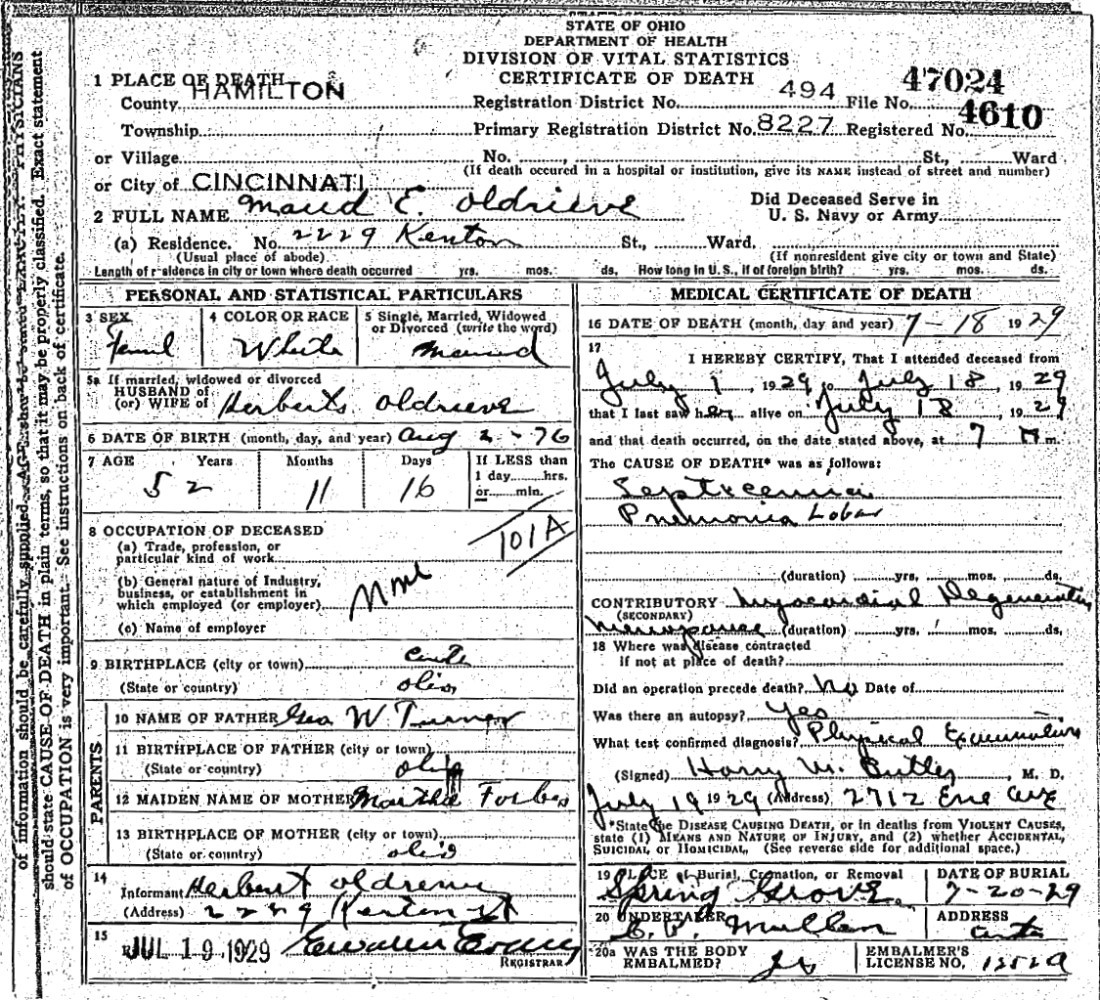 STATE OF OHIO
DEPARTMENT OF HEALTH
DIVISION OF VITAL STATISTICS
CERTIFICATE OF DEATH
1 PLACE OF DEATH
County HAMILTON
Registration District No. 494 File No. 47024
Township Primary Registration District No. 8227 Registered No. 4610
or Village No. , St., Ward
(If death occured in a hospital or institution, give its NAME instead of street and number)
or City of CINCINNATI
2 FULL NAME Maud E. Oldrieve
Did Deceased Serve in
U. S. Navy or Army
(a) Residence. No. 2229 Kenton St., Ward.
(Usual place of abode) (If nonresident give city or town and State)
Length of residence in city or town where death occurred yrs. mos. ds. How long in U. S., if of foreign birth? yrs. mos. ds.
PERSONAL AND STATISTICAL PARTICULARS
3 SEX 4 COLOR OR RACE 5 Single, Married, Widowed
or Divorced (write the word)
Feml White Married
5a If married, widowed or divorced
HUSBAND of
(or) WIFE of Herbert Oldrieve
6 DATE OF BIRTH (month, day, and year) Aug 2 - 76
7 AGE Years Months Days If LESS than
1 day hrs.
or min.
52 11 16
8 OCCUPATION OF DECEASED
101A
(a) Trade, profession, or
particular kind of work
(b) General nature of Industry,
business, or establishment in
which employed (or employer) None
(c) Name of employer
9 BIRTHPLACE (city or town)
(State or country) Ohio
PARENTS
10 NAME OF FATHER Geo W. Turner
11 BIRTHPLACE OF FATHER (city or town)
(State or country) Ohio
12 MAIDEN NAME OF MOTHER Martha Forbes
13 BIRTHPLACE OF MOTHER (city or town)
(State or country) Ohio
14
Informant Herbert Oldrieve
(Address) 2229 Kenton St
15
JUL 19 1929
REGISTRAR
MEDICAL CERTIFICATE OF DEATH
16 DATE OF DEATH (month, day and year) 7-18 1929
17
I HEREBY CERTIFY, That I attended deceased from
July 1, 1929 to July 18, 1929
that I last saw her alive on July 18, 1929
and that death occurred, on the date stated above, at 7 m.
The CAUSE OF DEATH* was as follows:
Septicemia
Pnemonia Lobar
(duration) yrs. mos. ds.
CONTRIBUTORY Myocardial Degeneration
(SECONDARY)
Menopause (duration) yrs. mos. ds.
18 Where was disease contracted
if not at place of death?
Did an operation precede death? No Date of
Was there an autopsy? Yes
What test confirmed diagnosis? Physical Examination
(Signed) Harry M. Butler, M. D.
July 19 1929 (Address) 2712 Erie Ave
*State the DISEASE CAUSING DEATH, or in deaths from VIOLENT CAUSES,
state (1) MEANS AND NATURE OF INJURY, and (2) whether ACCIDENTAL,
SUICIDAL or HOMICIDAL. (See reverse side for additional space.)
19 PLACE of Burial, Cremation, or Removal DATE OF BURIAL
Spring Grove. 7-20-29
20 UNDERTAKER ADDRESS
Mullen
20a WAS THE BODY
EMBALMED?
EMBALMER'S
LICENSE NO. 1252A
of information should be carefully supplied. AGE should be stated EXACTLY. PHYSICIANS
should state CAUSE OF DEATH in plain terms, so that it may be properly classified. Exact statement
of OCCUPATION is very important. See instructions on back of certificate.